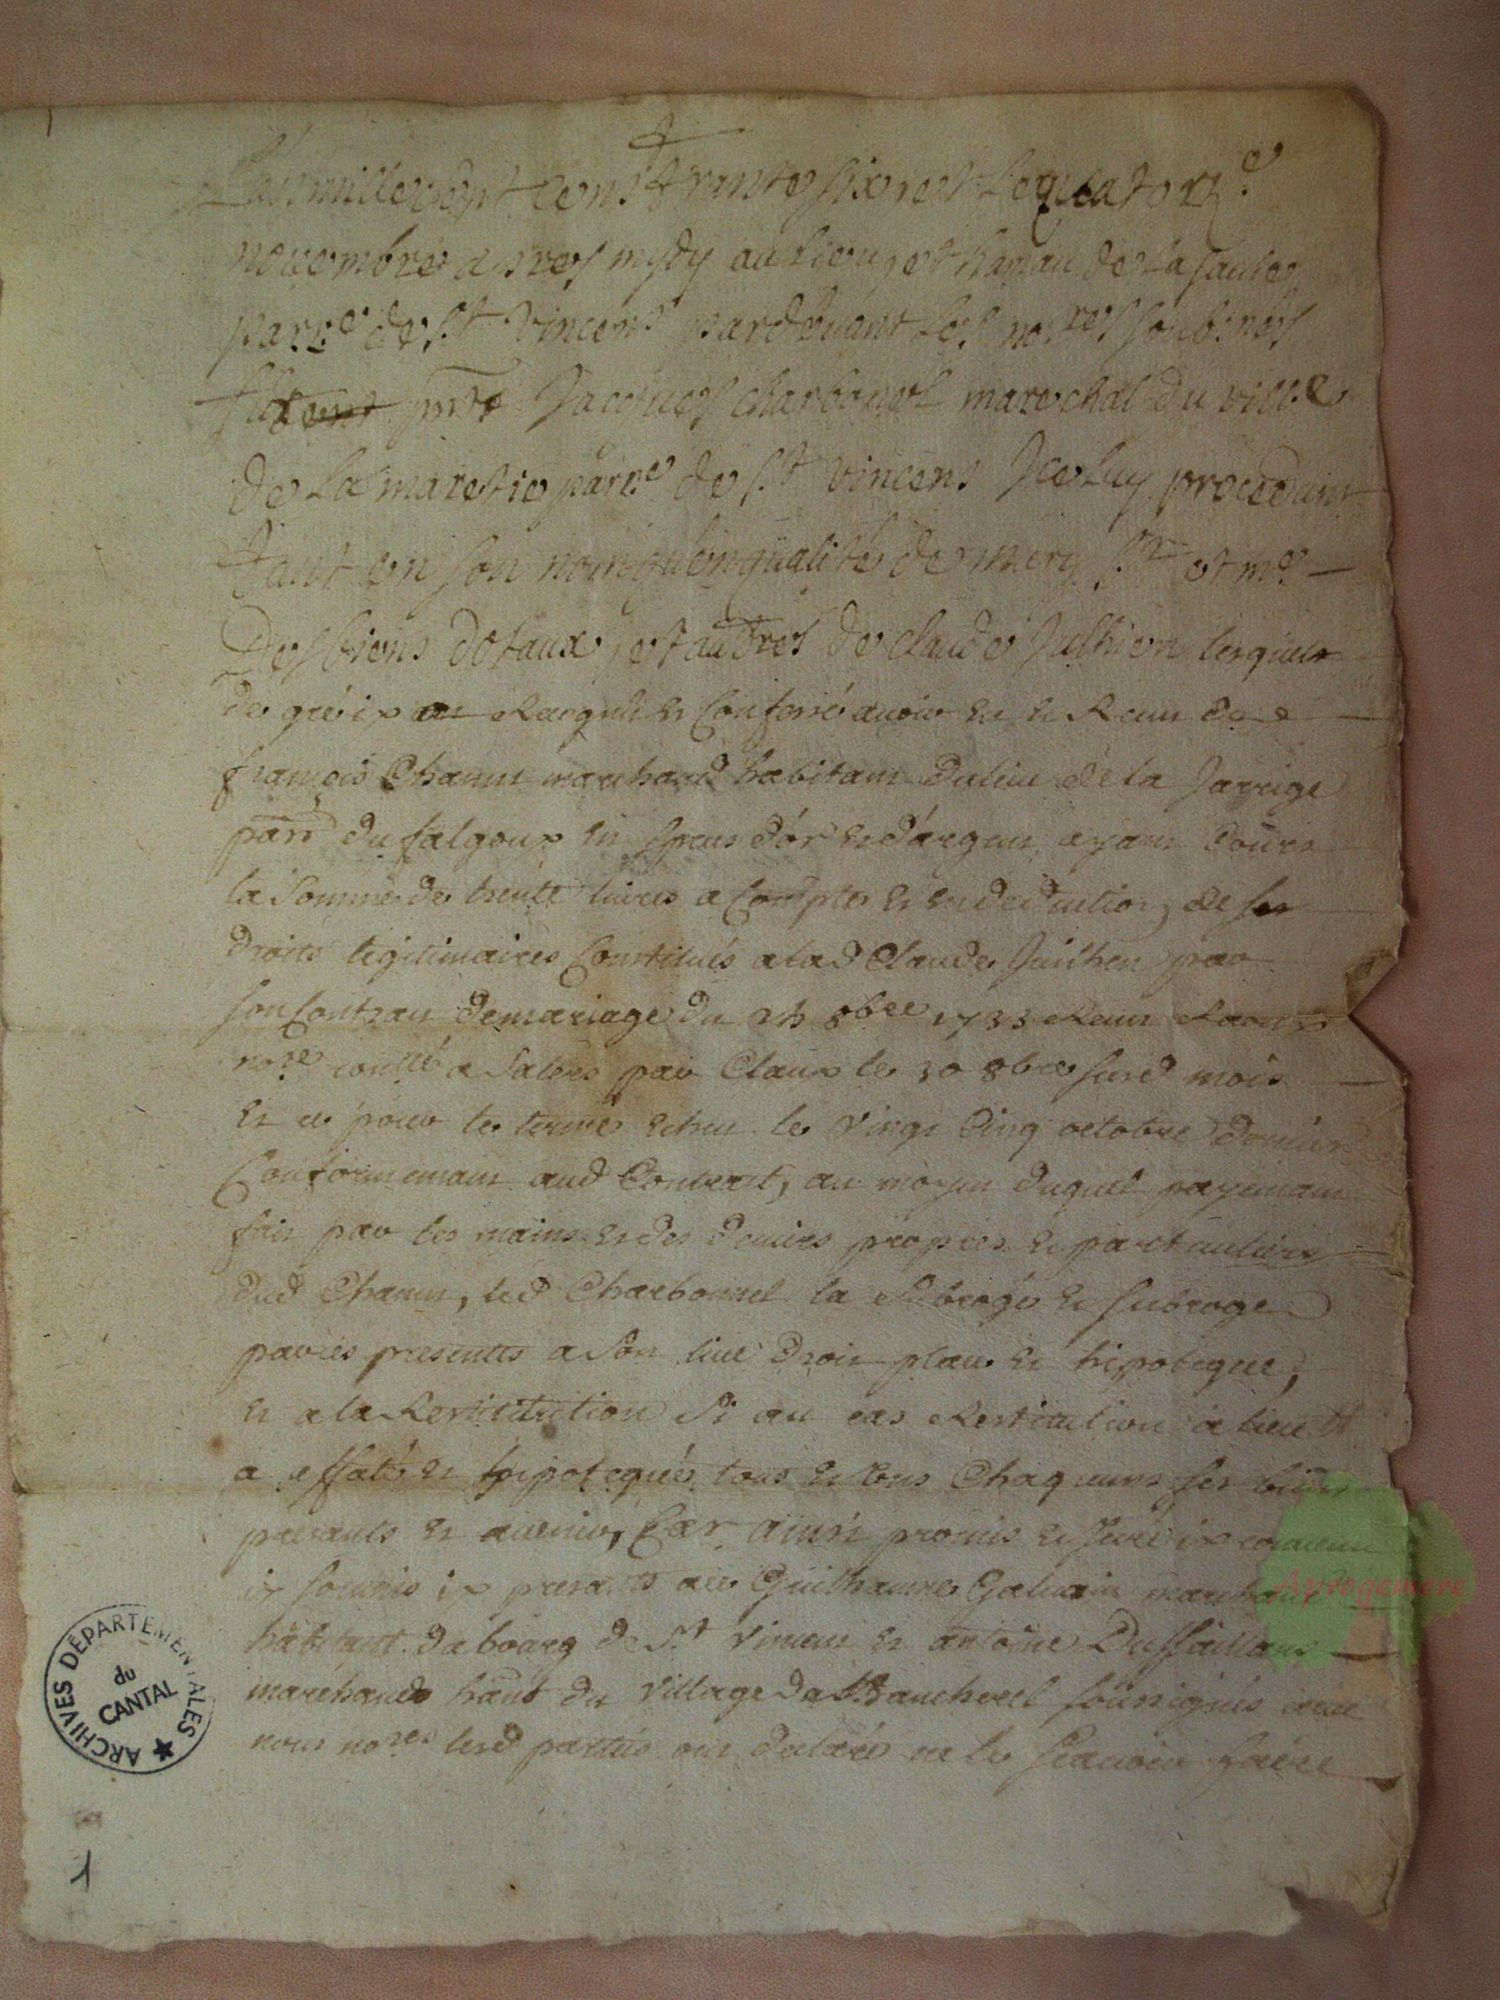 L'an mille sept cens trante six et le quatorz.e
novembre apres mydy au lieu et hameau de la
parr.e de s.t Vincens pardevant les no.res soub.nes
fut pn.t Jacques charbonel marechal du vill.e
de la maretie parr.e de s.t vincens Iceluy procedant
tant en son nom qu'en qualité de mary s.r et m.e
Des biens dotaux et autres de claude Julhien lesquels
de gré ix ont et Confessé avoir eu et Receu de
françois Chanut marchand habitant du lieu de la Jarrige
parr du falgoux en especes d'or et d'argent ayant Cours
la Somme de trente livres a Compte et en deduction de ses
droits legitimaires Constitués a lad Claude Juilhen par
son Contrant de mariage du 24 8bre 1733 Receu
no.re con.llé a Salers par Claux le 30 8bre surd mois
et ce pour le terme echeu le vingt Cinq octobre Dernier
Conformemant aud Contract, au moyen duquel payemant
fait par les mains et des deniers propres et particuliers
dud Chanut, led Charbonnel la Subrogé et subroge
par ces presentes a Son lieu Droit place et hipoteque,
et a la Restitution Si au cas Restitution a lieu
a affaté et hipotequés tous et uns Chaquuns ses biens
presants et avenir, Car ainsi promis et Juré ix
ix soumis ix presants Guilhaume Galvain marchand
habitant du bourg de S.t Vincent et antoine Duffaillans
marchand hant du Village du Bancharel Soûnignés avec
nous no.res lesd parties ont declaré ne le Scavoir faire
ARCHIVES DÉPARTEMENTALES
du
CANTAL
1